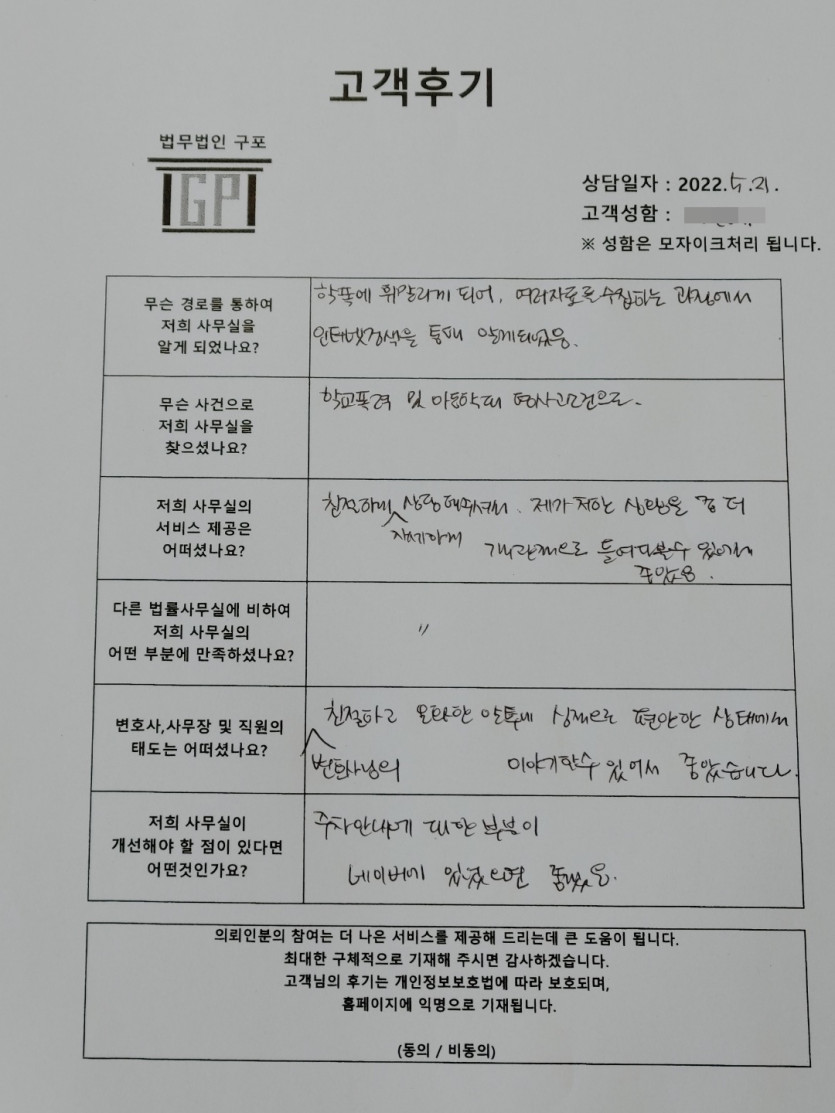 고객후기
법무법인 구포
GP
상담일자 : 2022.5.21.
고객성함 :
※ 성함은 모자이크처리 됩니다.
무슨 경로를 통하여
저희 사무실을
알게 되었나요?
학폭에 휘말리게 되어, 여러자료를 수집하는 과정에서
인터넷검색을 통해 알게되었음.
무슨 사건으로
저희 사무실을
찾으셨나요?
학교폭력 및 아동학대 형사고소건으로.
저희 사무실의
서비스 제공은
어떠셨나요?
친절하게 상담해주셔서. 제가 처한 상황을 좀 더
자세하게 객관적으로 들여다볼수 있어서
좋았음.
다른 법률사무실에 비하여
저희 사무실의
어떤 부분에 만족하셨나요?
〃
변호사,사무장 및 직원의
태도는 어떠셨나요?
친절하고 온화한 말투에 상대적으로 편안한 상태에서
변호사님의 이야기할수 있어서 좋았습니다.
저희 사무실이
개선해야 할 점이 있다면
어떤것인가요?
주차안내에 대한 부분이
네이버에 있었으면 좋겠음.
의뢰인분의 참여는 더 나은 서비스를 제공해 드리는데 큰 도움이 됩니다.
최대한 구체적으로 기재해 주시면 감사하겠습니다.
고객님의 후기는 개인정보보호법에 따라 보호되며,
홈페이지에 익명으로 기재됩니다.
(동의 / 비동의)